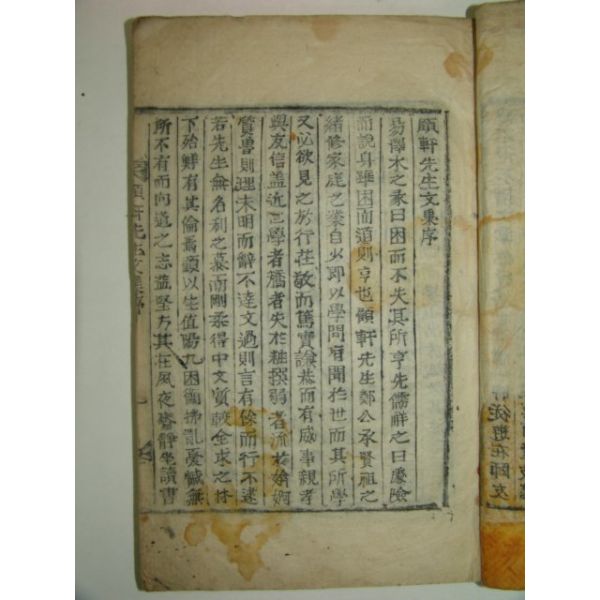 頤軒先生文集序
易澤水之彖曰困而不失其所亨先儒釋之曰處險
而說身雖困而道則亨也頤軒先生鄭公承賢祖之
緖修家庭之業自少卽以學問有聞於世而其所學
又必欲見之於行莊敬而篤實謙恭而有威事親孝
與友信盖近世學者騖者失於粗撰弱者流於媕婀
質魯則理未明而辭不達文過則言有餘而行不逮
若先生無名利之慕而剛柔得中文質兼全求之林
下殆鮮有其倫焉顧以生値陽九困衡拂亂憂慽無
所不有而向道之志益堅方其在夙夜齋靜坐讀書
頤軒先生文集序